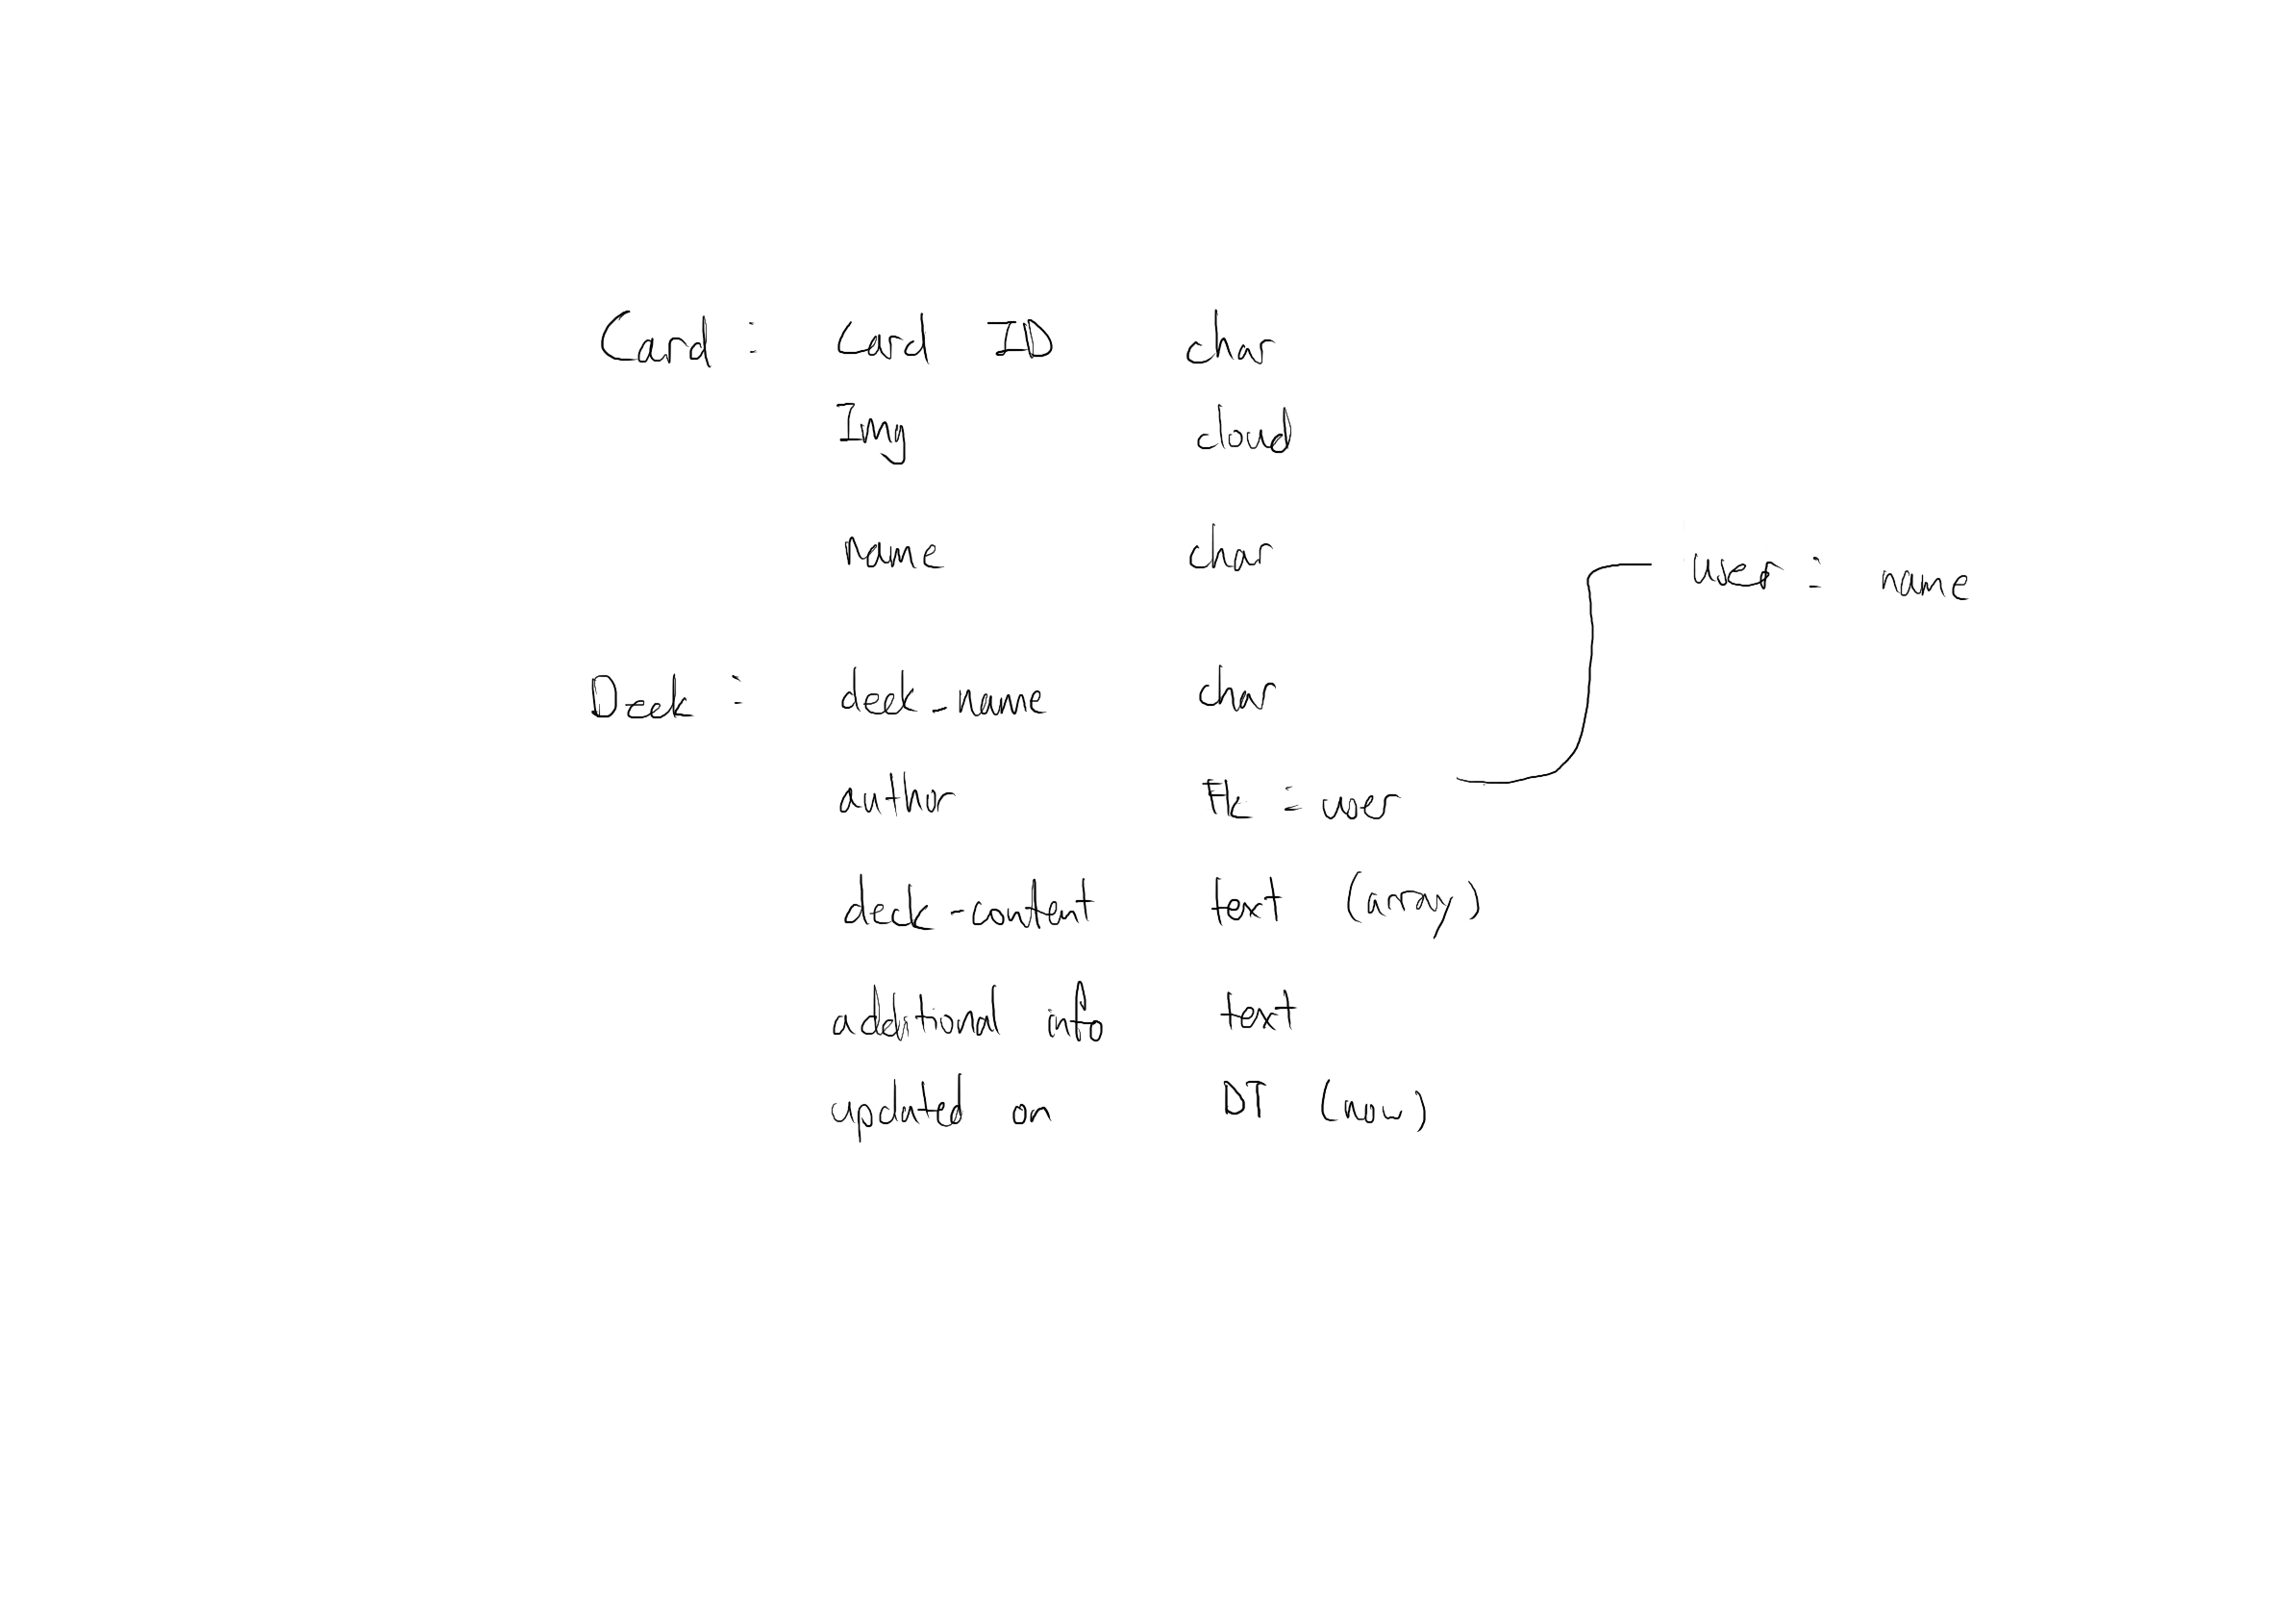 Card : Card ID char
Img cloud
name char
user : name
Deck : deck_name char
author FK = user
deck-content text (array)
additional info text
updated on DT (now)